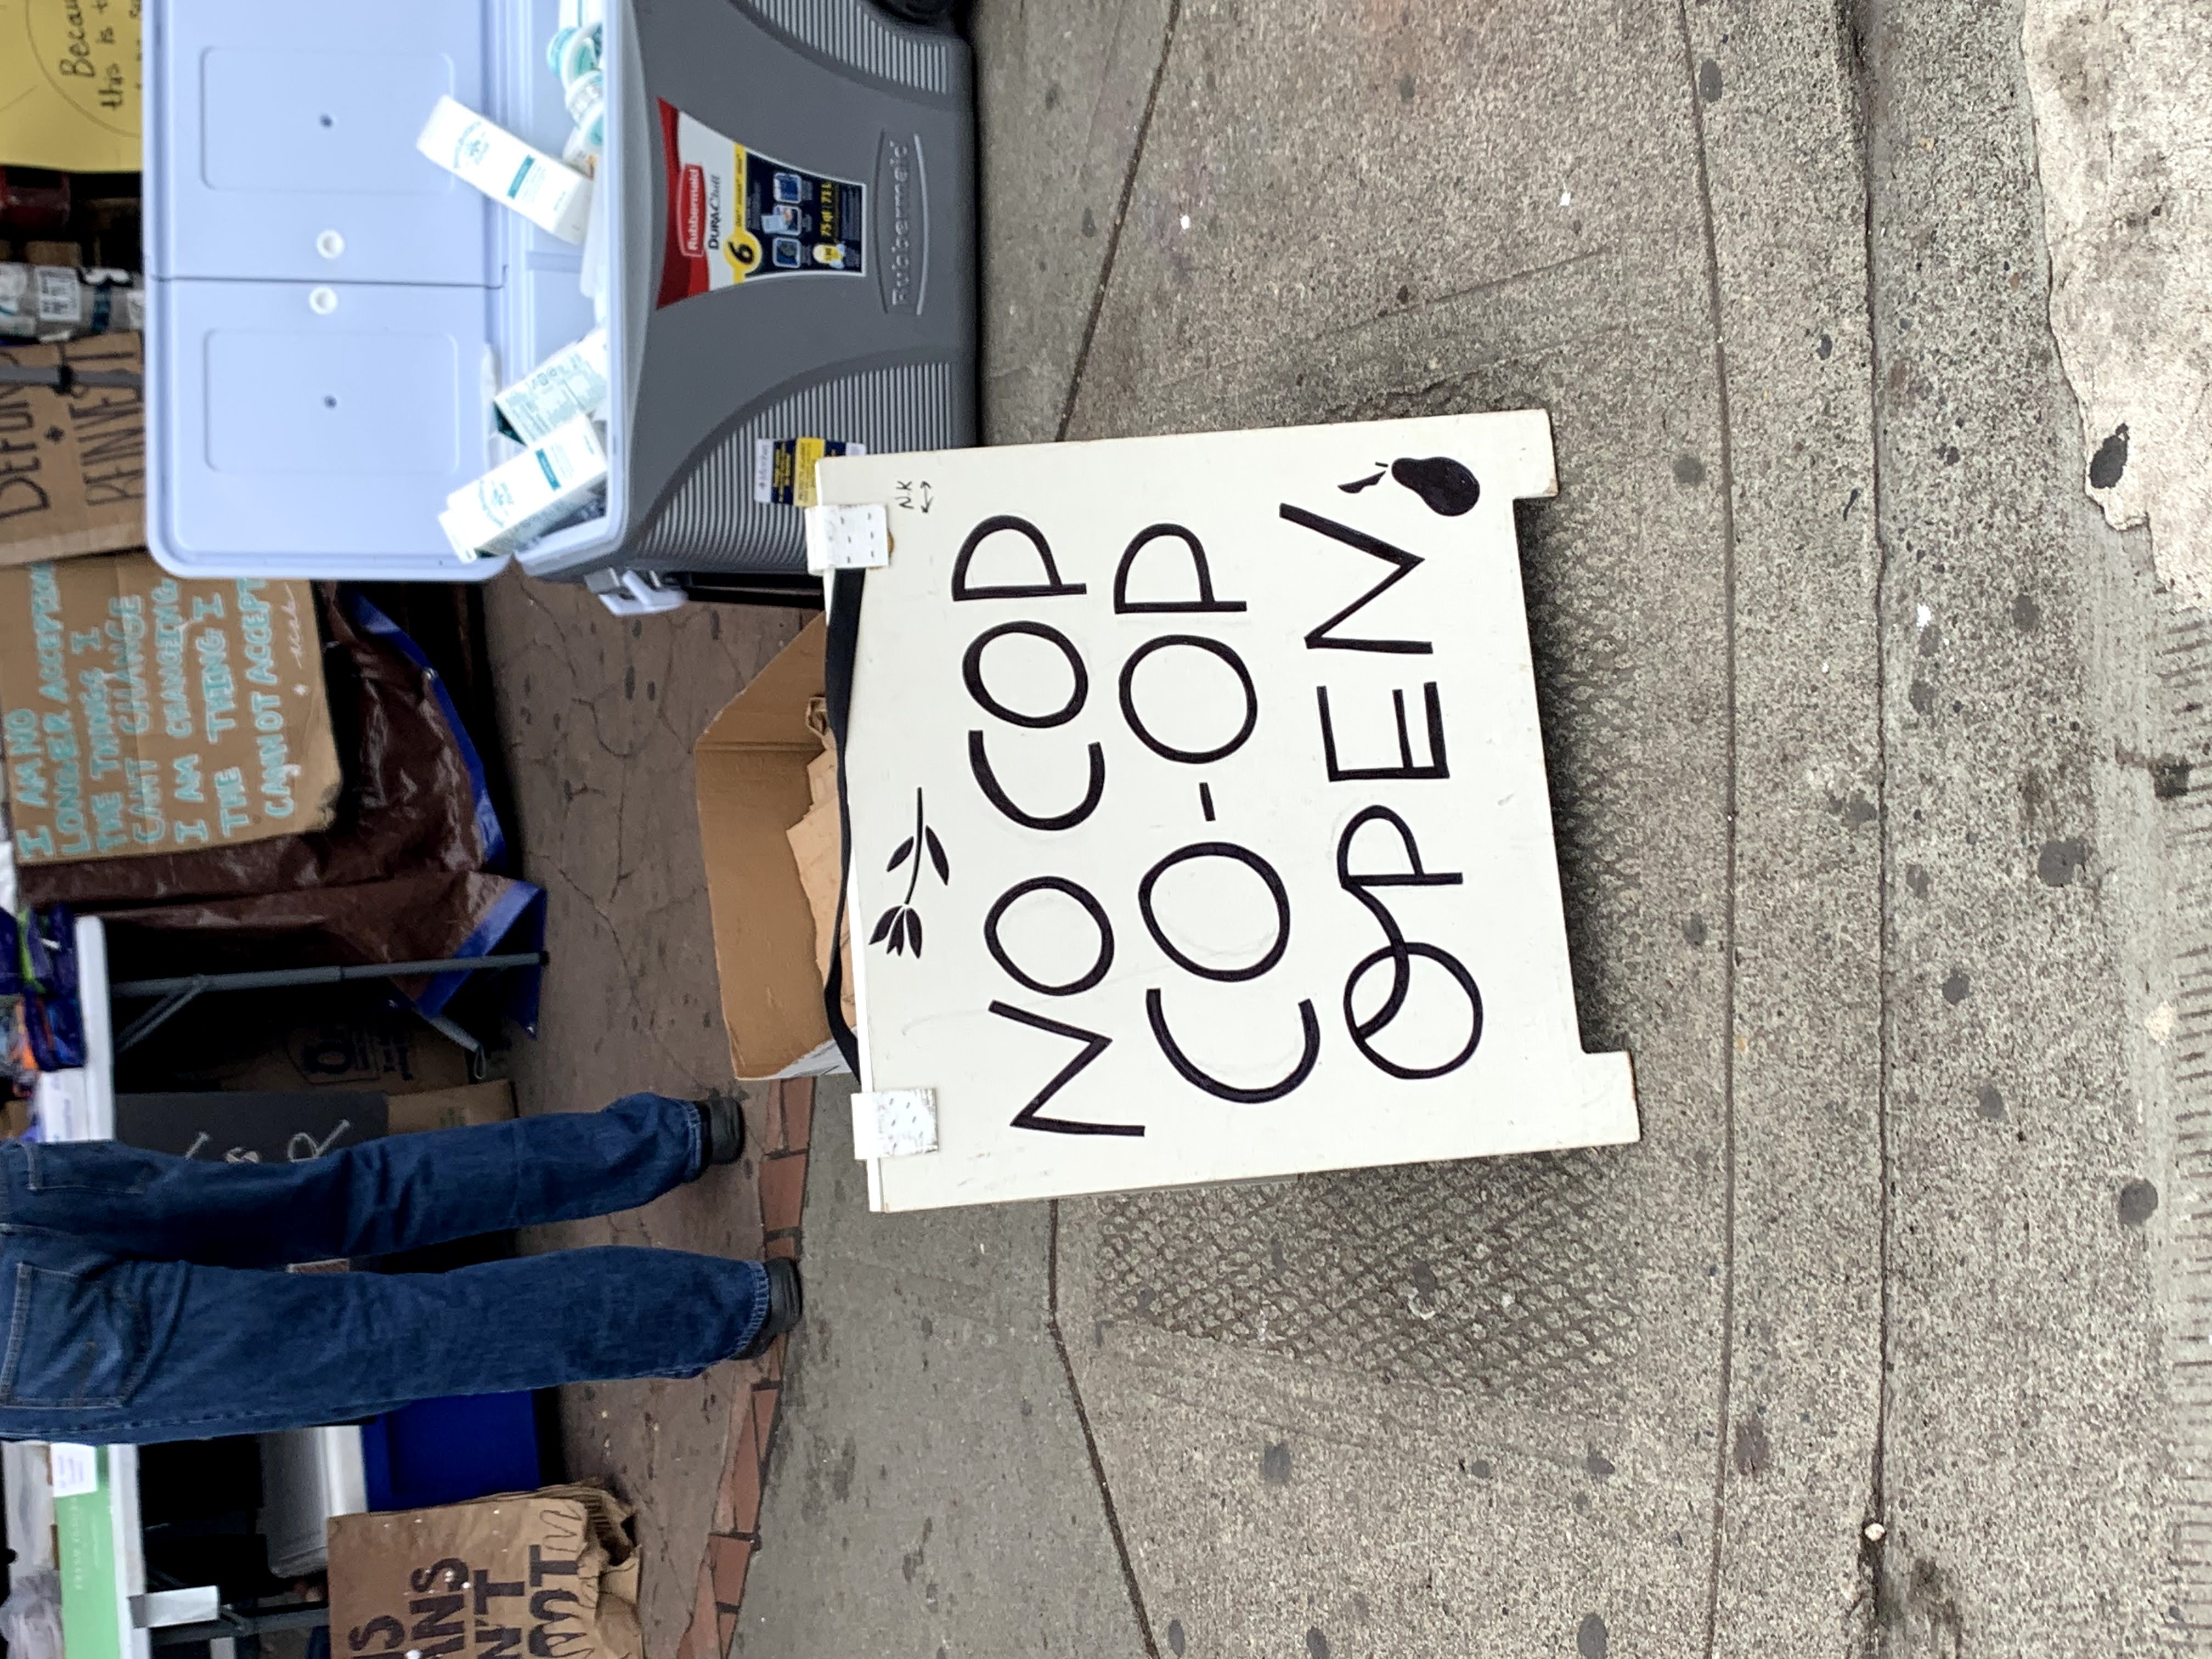 I AM NO
LONGER ACCEPTING
THE THINGS I
CANT CHANGE
I AM CHANGING
THE THING I
CANNOT ACCEPT
DEFUND
+
REINVEST
Becau
this is t
IS
ANS
N'T
OOT
Rubbermaid
DURAChill
6
75 qt | 71 L
Rubbermaid
N.K
NO COP
CO-OP
OPEN